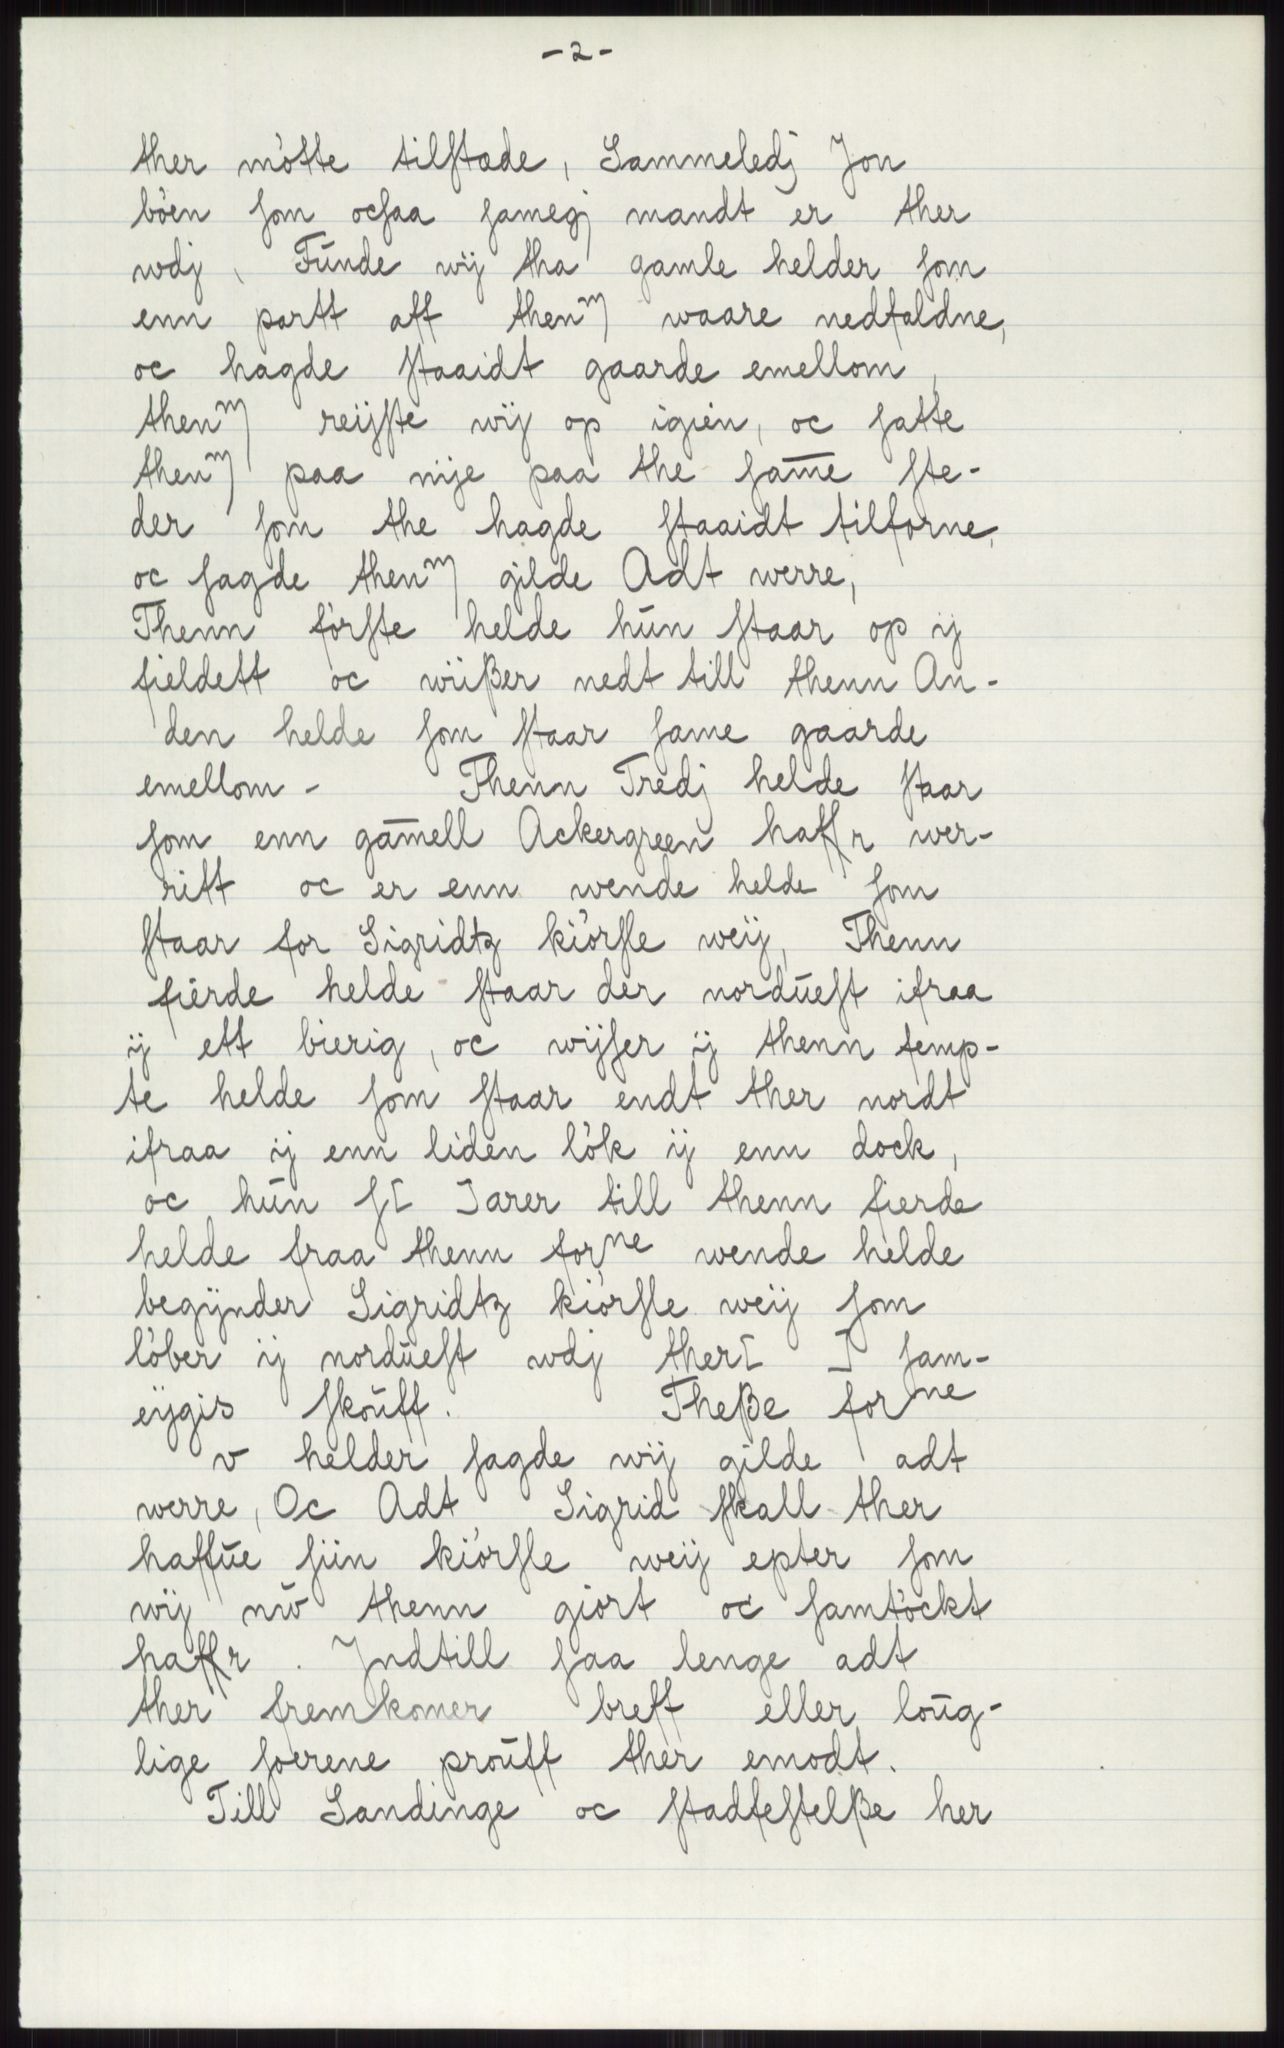 -2-
ther mötte tilstede, Sammeledj Jon
böen som ocsaa samegj mandt er ther
wdj, Funde wij tha gamle helder som
enn partt aff thenm waare nedfaldne,
oc hagde staaidt gaarde emellom,
thenm reijste wij op igien, oc satte
thenm paa nije paa the sam̅e ste-
der som the hagde staaidt tilforne,
oc sagde thenm gilde Adt werre,
Thenn förste helde hun staar op ij
fieldett oc wiißer nedt till thenn An-
den helde som staar same gaarde
emellom - Thenn Tredj helde staar
som enn gam̅ell Ackergreen haffr wer-
ritt oc er enn wende helde som
staar for Sigridtz kiörsle weij, Thenn
fierde helde staar der norduest ifraa
ij ett bierig, oc wijser ij thenn femp-
te helde som staar endt ther nordt
ifraa ij enn liden lök ij enn dock,
oc hun s[ ]arer till thenn fierde
helde fraa thenn forne wende helde
begynder Sigridtz kiörsle weij som
löber ij norduest wdj ther[ ] sam-
eijgis skouff. Theße forne
v helder sagde wij gilde adt
werre, Oc Adt Sigrid skall ther
haffue siin kiörsle weij epter som
wij nuv thenn giort oc samtöckt
haffr. Jndtill saa lenge adt
ther fremkomer breff eller loug-
lige soerene prouff ther emodt.
Till Sandinge oc stadfestelße her